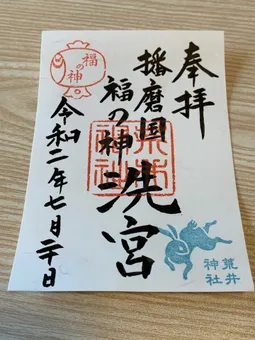 奉拝
播磨国
福の神 洗宮
令和二年七月二十日
福の神
荒井神社
荒井神社